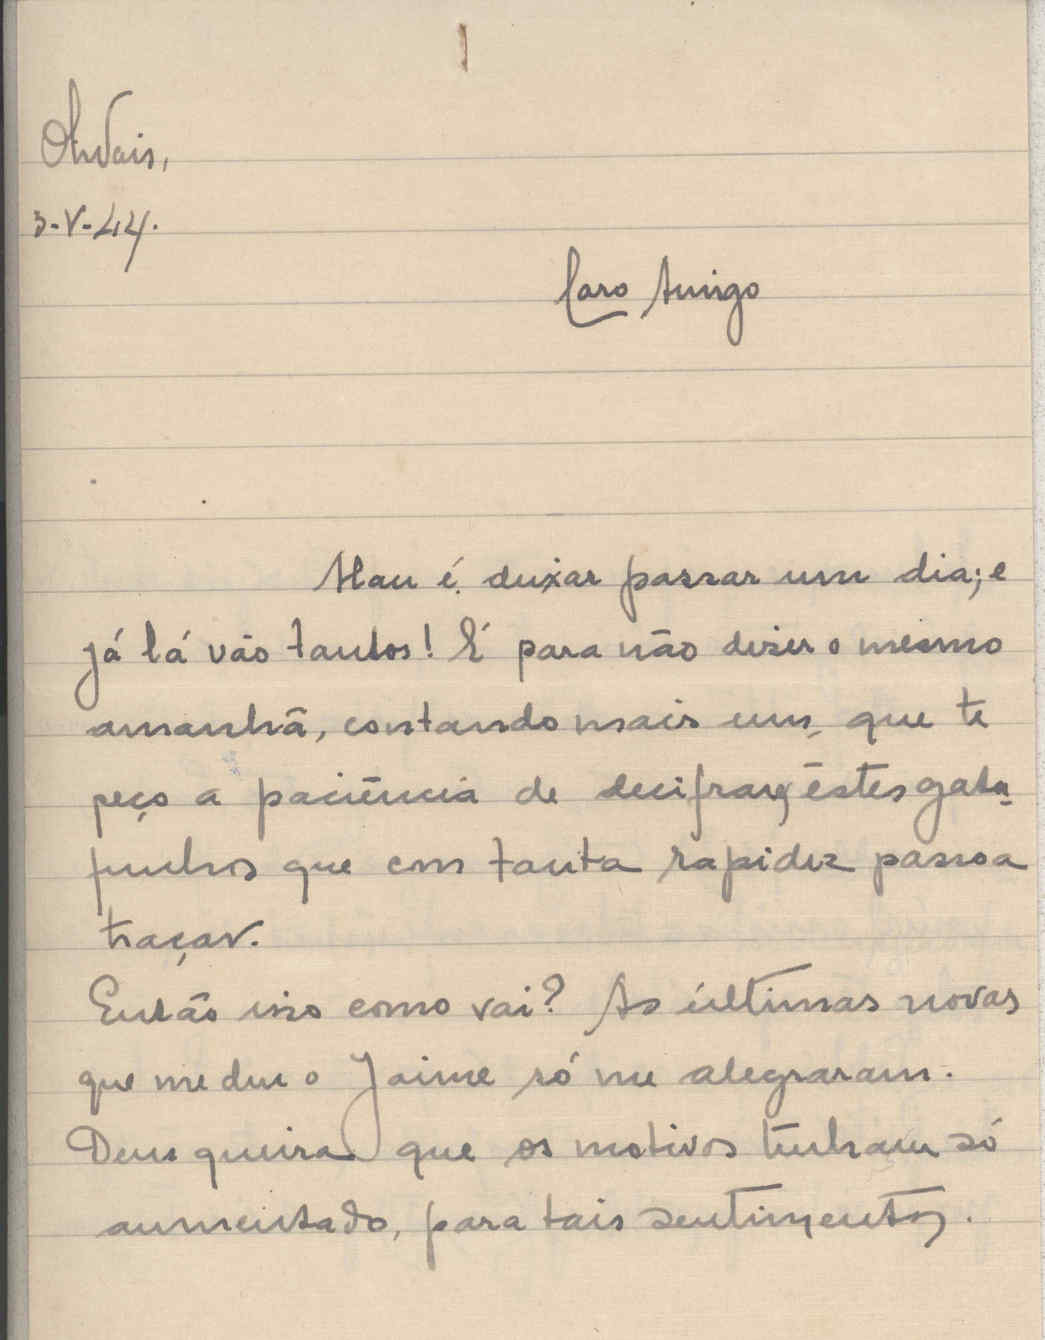 Olivais,
3-V-44.
Caro Amigo
Mau é deixar passar um dia; e
já lá vão tantos! E para não dizer o mesmo
amanhã, contando mais um, que te
peço a paciência de decifrar êstes gata-
funhos que com tanta rapidez passo a
traçar.
Então isso como vai? As últimas novas
que me deu o Jaime só me alegraram.
Deus queira que os motivos tenham só
aumentado, para tais sentimentos.